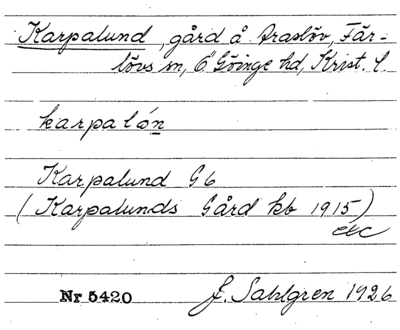 Karpalund, gård å Araslöv, Fär-
lövs sn, Ö Göinge hd, Krist. l.
karpalón
Karpalund G6
(Karpalunds Gård kb 1915)
etc
Nr 5420 J. Sahlgren 1926